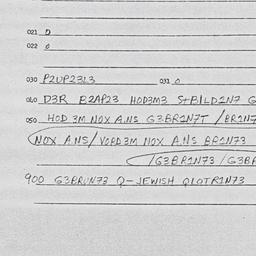 021 0
022 0
030 P2UP23L3 031 0
040 D3R B2AP23 HOD3M3 S+BILD1N7 G
050 HOD 3M NOX A.NS G3BR1N7T / BR1N7
NOX A.NS / VORD 3M NOX A.NS BR1N73
/G3BR1N73 / G3BR
900 G3BRUN73 Q-JEWISH QLOTR1N73